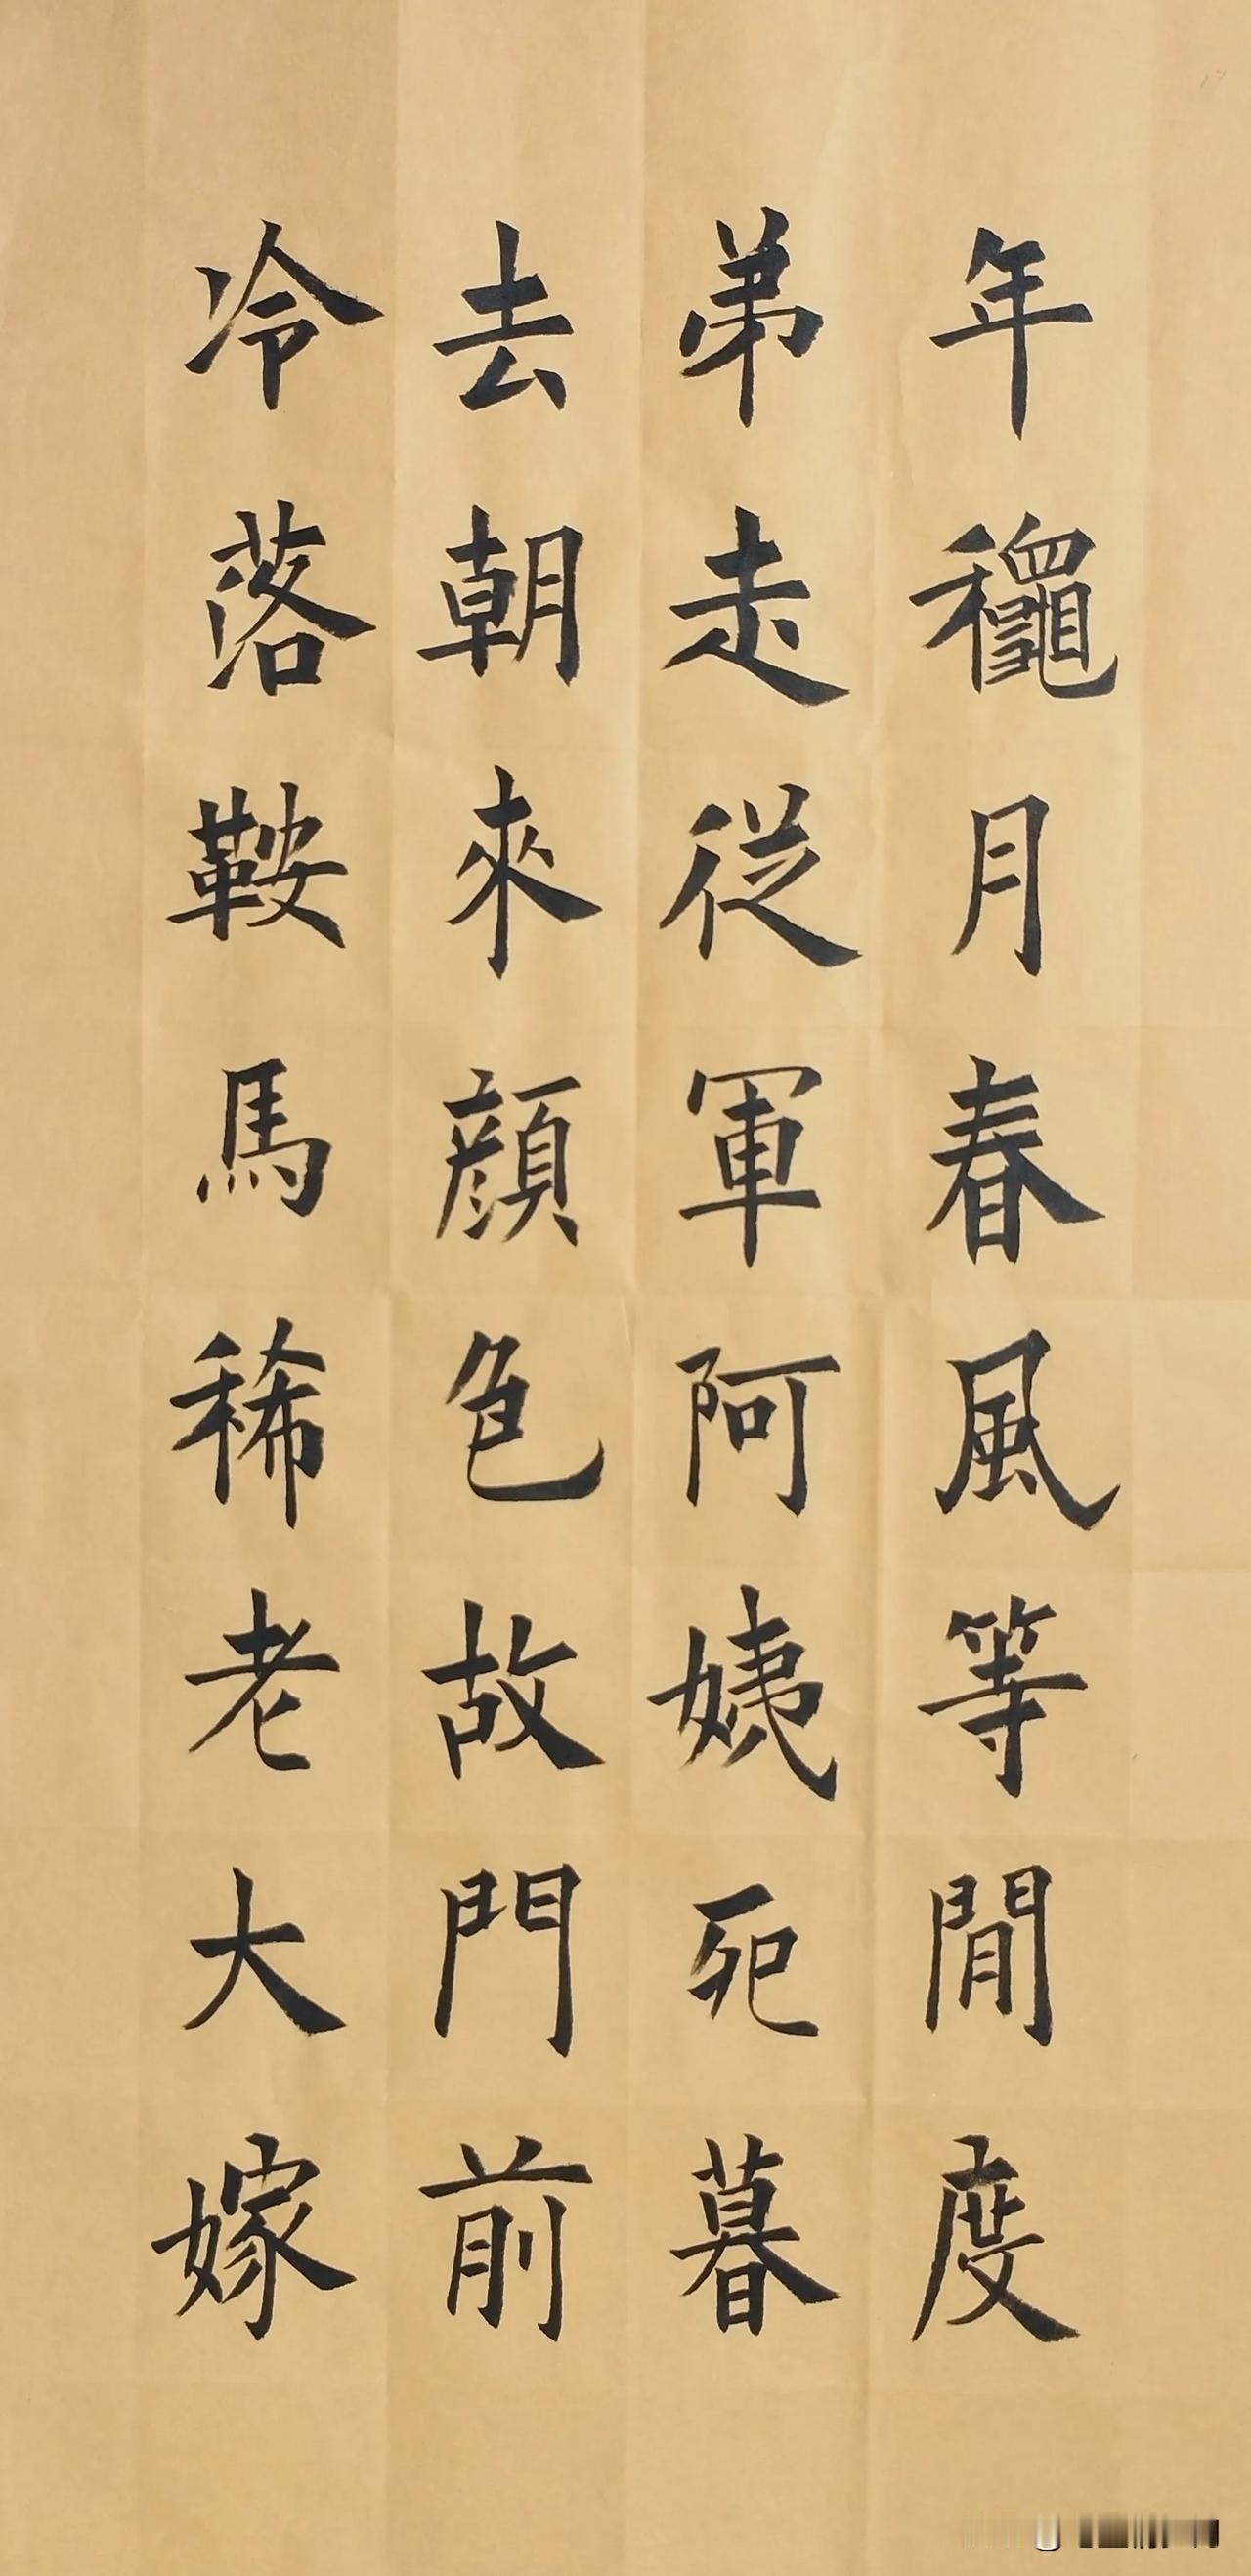 年龝月春風等閒度
弟走從軍阿姨死暮
去朝來顔色故門前
冷落鞍馬稀老大嫁